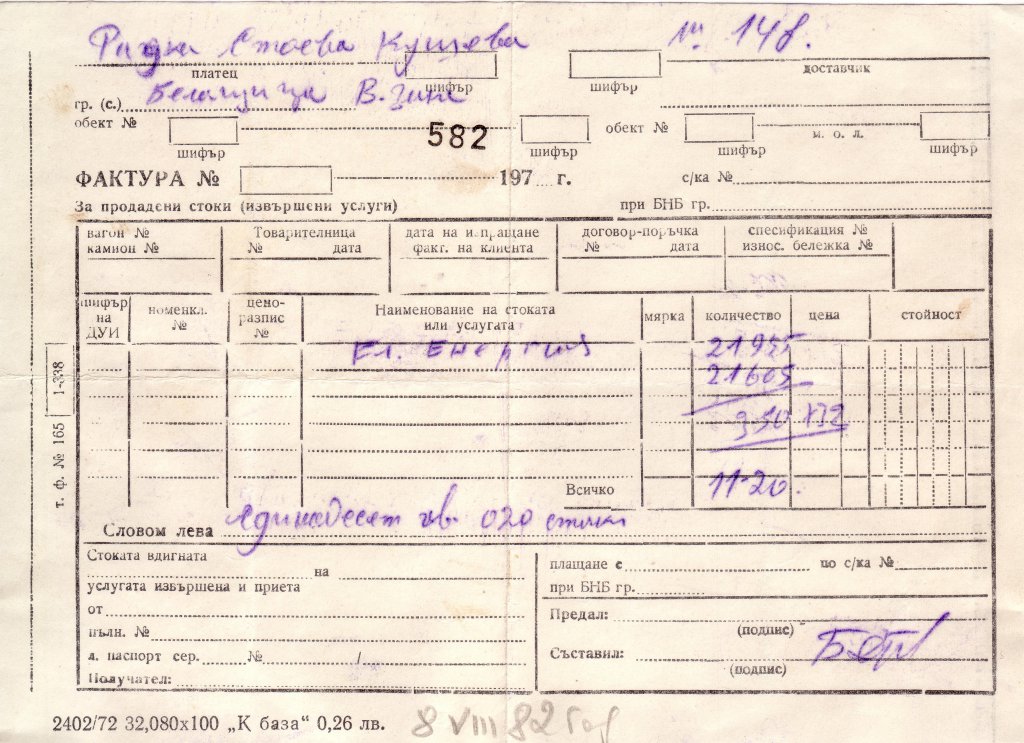 Радка Стоева Кушева № 148.
платец шифър шифър доставчик
гр. (с.) Белащица В. зона
обект № 582 обект № м. о. л.
шифър шифър шифър шифър
ФАКТУРА № 197 г. с/ка №
За продадени стоки (извършени услуги) при БНБ гр.
вагон № Товарителница дата на изпращане договор-поръчка спесификация №
камион № № дата факт. на клиента № дата износ. бележка №
шифър на ДУИ номенкл. № цено-разпис № Наименование на стоката или услугата мярка количество цена стойност
Ел. Енергия 21955
21605
350 х32
Всичко 11·20.
Словом лева Единадесет лв. 020 стотки
Стоката вдигната
на
услугата извършена и приета
от
пълн. №
л. паспорт сер. № /
Получател:
плащане с по с/ка №
при БНБ гр.
Предал:
(подпис)
Съставил:
(подпис)
т. ф. № 165 1-338
2402/72 32,080x100 „К база“ 0,26 лв. 8 VIII 82 год